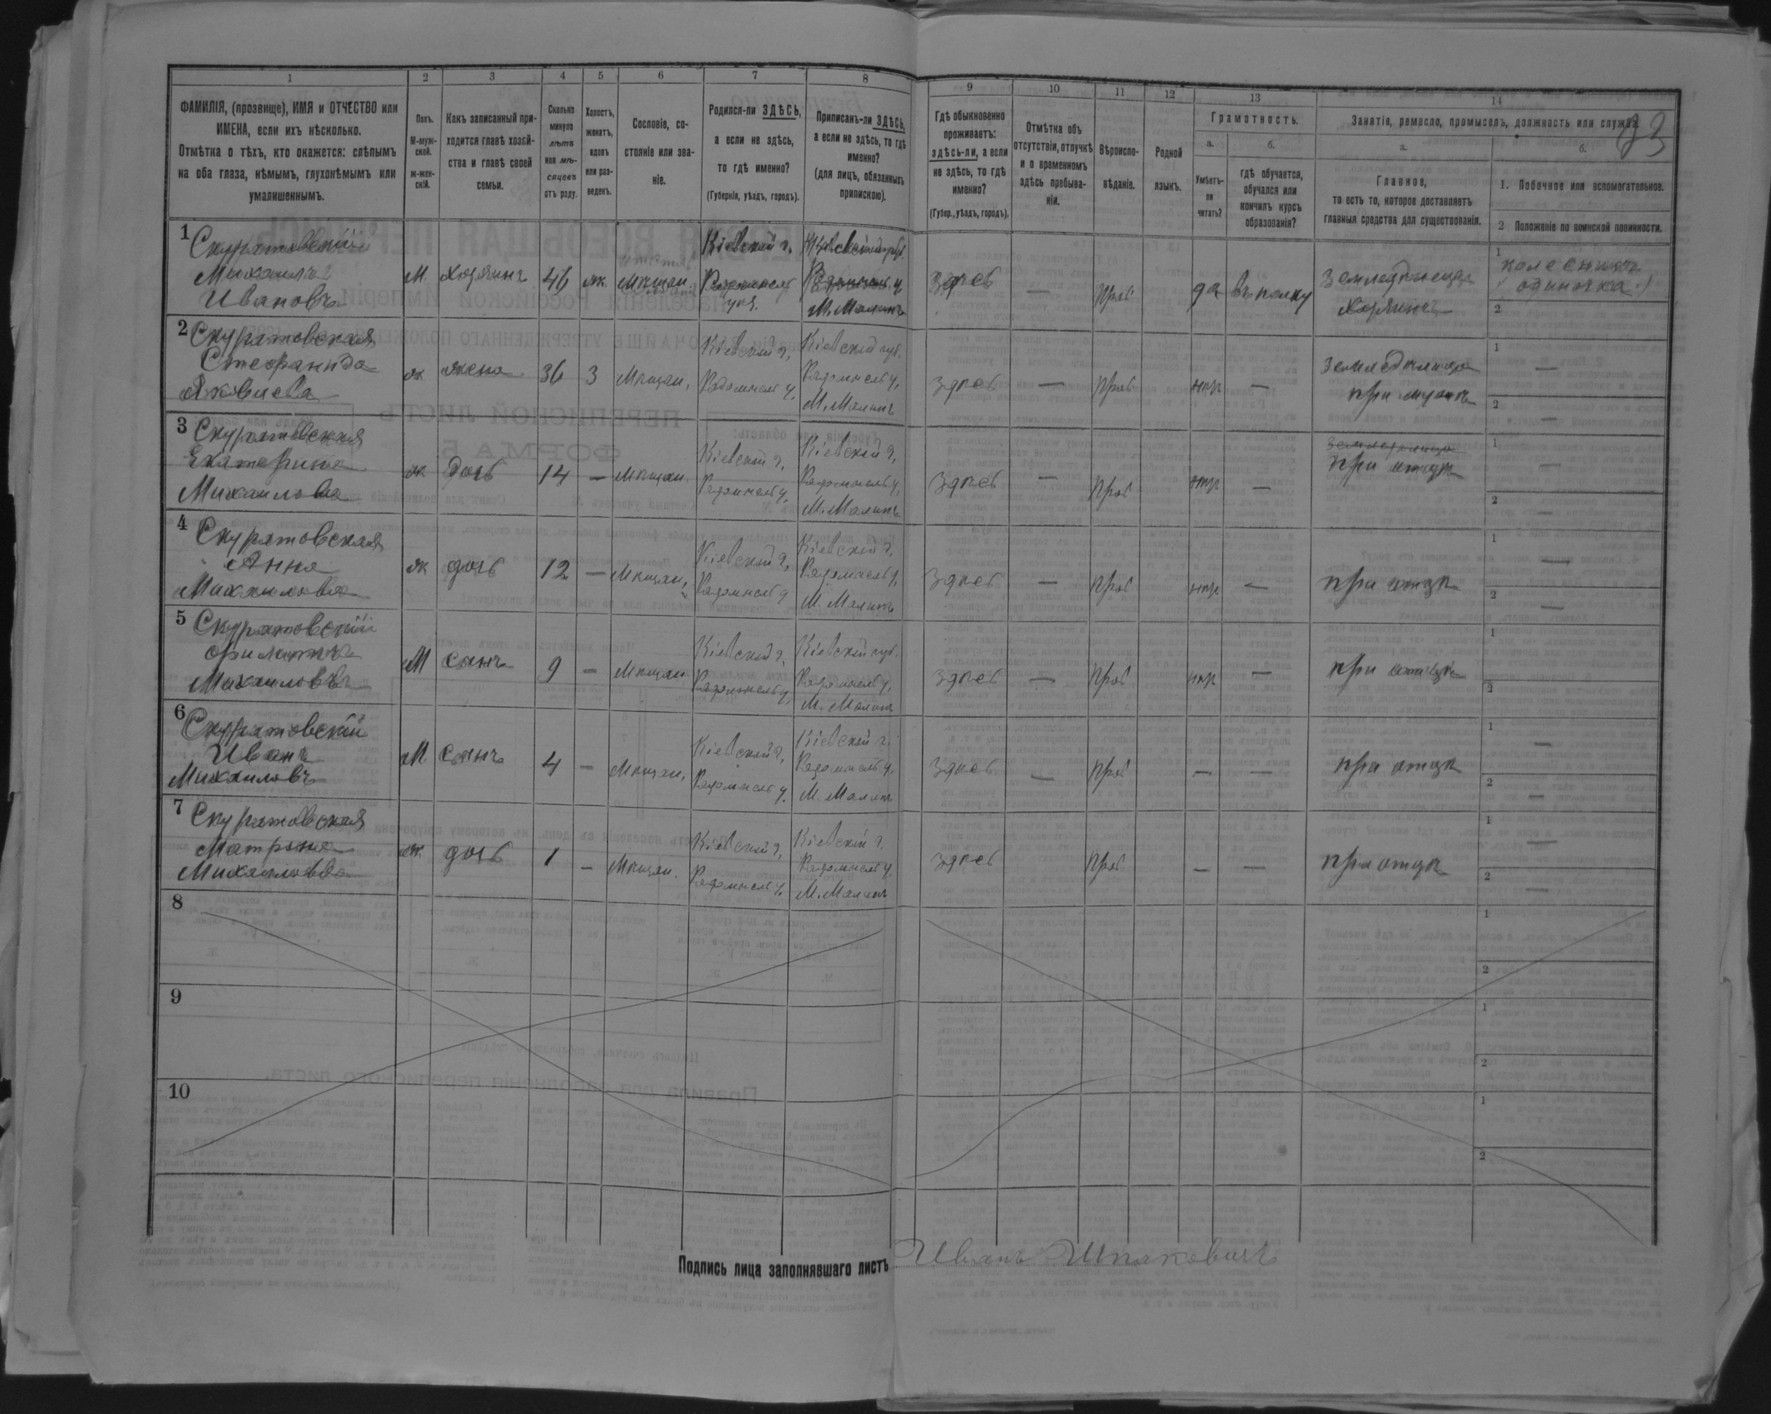 1 2 3 4 5 6 7 8 9 10 11 12 13 14
ФАМИЛІЯ, (прозвище), ИМЯ и ОТЧЕСТВО или
ИМЕНА, если ихъ нѣсколько.
Отмѣтка о тѣхъ, кто окажется: слѣпымъ
на оба глаза, нѣмымъ, глухонѣмымъ или
умалишеннымъ.
Полъ.
М-муж-
ской.
ж-жен-
скій.
Какъ записанный при-
ходится главѣ хозяй-
ства и главѣ своей
семьи.
Сколько
минуло
лѣтъ
или мѣ-
сяцевъ
отъ роду.
Холостъ,
женатъ,
вдовъ
или раз-
веденъ.
Сословіе, со-
стояніе или зва-
ніе.
Родился-ли ЗДѢСЬ,
а если не здѣсь,
то гдѣ именно?
(Губернія, уѣздъ, городъ).
Приписанъ-ли ЗДѢСЬ,
а если не здѣсь, то гдѣ
именно?
(для лицъ, обязанныхъ
припискою).
Гдѣ обыкновенно
проживаетъ:
здѣсь-ли, а если
не здѣсь, то гдѣ
именно?
(Губер., уѣздъ, городъ).
Отмѣтка объ
отсутствіи, отлучкѣ
и о временномъ
здѣсь пребыва-
ніи.
Вѣроиспо-
вѣданіе.
Родной
языкъ.
Грамотность.
а.
Умѣетъ-
ли
читать?
б.
гдѣ обучается,
обучался или
кончилъ курсъ
образованія?
Занятіе, ремесло, промыселъ, должность или служба.
а.
Главное,
то есть то, которое доставляетъ
главныя средства для существованія.
б.
1. Побочное или вспомогательное.
2 Положеніе по воинской повинности.
1 Скуратовскій
Михаилъ
Ивановъ
М. хозяинъ 46 ж. мѣщан.
Кіевской г.
Радомысл
уѣз.
Кіевской губ.
Радомысл у.
М. Малинъ
здѣсь — прав да въ полку
Земледѣлецъ
хозяинъ
1
колесникъ
(одиночка)
2
2 Скуратовская
Стефанида
Яковлева
ж жена 36 З Мѣщан.
Кіевской г,
Радомысл у,
Кіевской губ.
Радомысл у,
М. Малинъ
здѣсь — прав нѣт —
земледѣлица
при мужѣ
1 —
2 —
3 Скуратовская
Екатерина
Михаилова
ж дочь 14 — Мѣщан.
Кіевской г,
Радомысл у,
Кіевской г,
Радомысл у,
М. Малинъ
здѣсь — прав нѣт —
при отцѣ
1 —
2 —
4 Скуратовская
Анна
Михаилова
ж дочь 12 — Мѣщан,
Кіевской г,
Радомысл у
Кіевской г,
Радомысл у,
М. Малинъ
здѣсь — прав нѣт —
при отцѣ
1 —
2 —
5 Скуратовскій
Филатъ
Михаиловъ
М сынъ 9 — Мѣщан.
Кіевской г,
Радомысл у,
Кіевской губ.
Радомысл у,
М. Малинъ
здѣсь — прав нѣт —
при отцѣ
1
2
6 Скуратовскій
Иванъ
Михаиловъ
М. сынъ 4 — Мѣщан,
Кіевской г,
Радомысл у.
Кіевской г.
Радомысл у.
М. Малинъ
здѣсь — прав — —
при отцѣ
1 —
2 —
7 Скуратовская
Матрена
Михаилова
ж. дочь 1 — Мѣщан.
Кіевской г,
Радомысл у.
Кіевской г.
Радомысл у.
М. Малинъ
здѣсь прав — —
при отцѣ
1 —
2 —
8
1
2
9
1
2
10
1
2
Подпись лица заполнявшаго листъ Иванъ Шпаковичъ